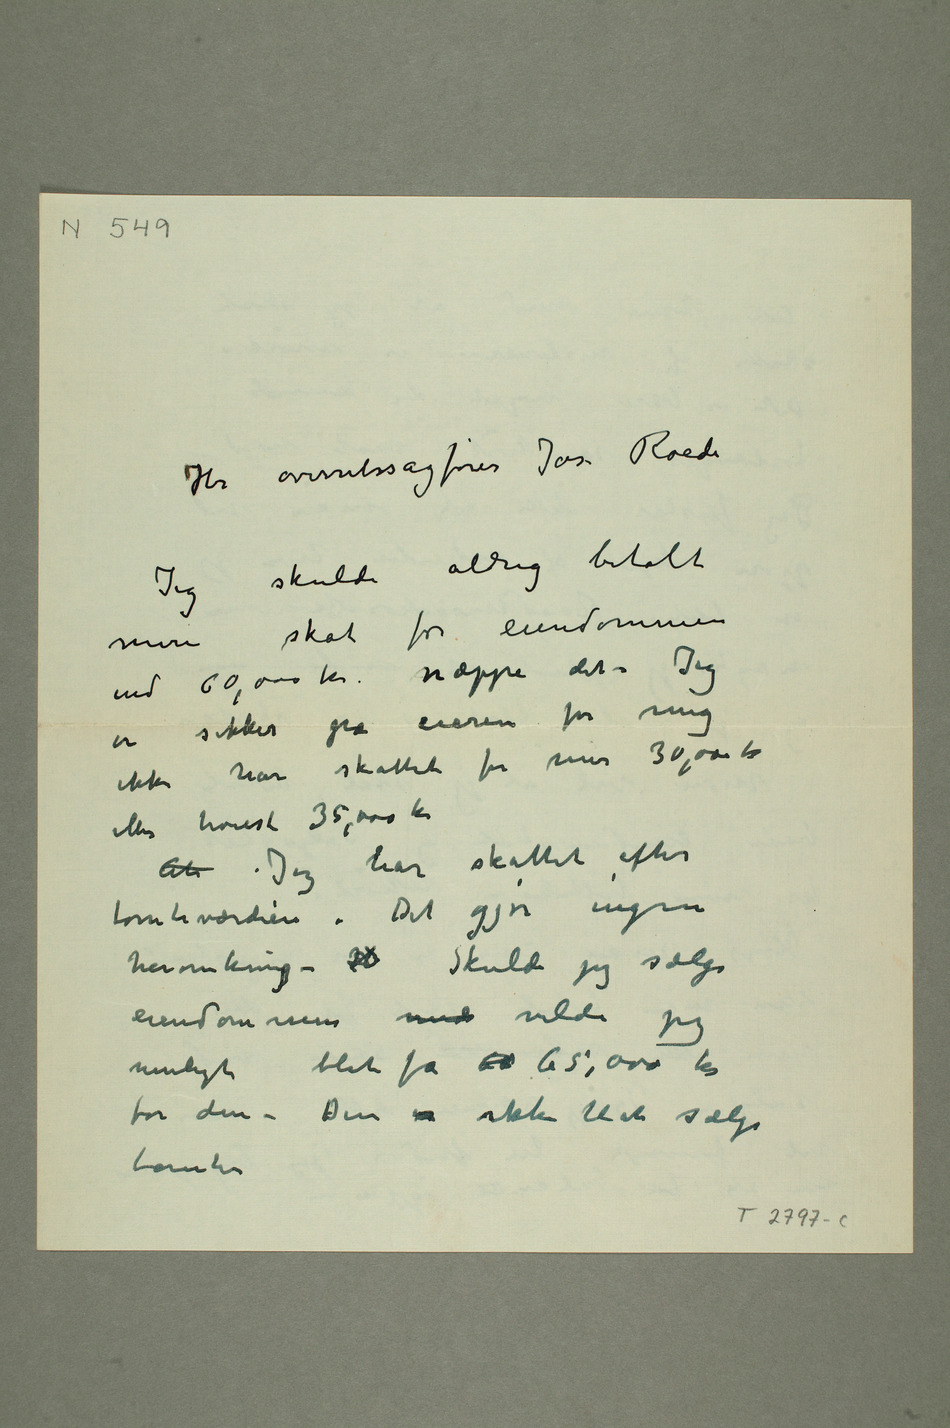 N 549
Hr overretssagfører Joh. Roede
Jeg skulde aldrig betalt
mere skat for eiendommen
end 60,000 kr. næppe det – Jeg
er sikker på eieren før mig
ikke har skattet for mer 30,000 kr
eller høiest 35,000 kr
At Jeg har skattet efter
tomteværdien . Det gjør ingen
heromkring – Skulde jeg sælge
eiendommen vilde jeg
muligt blot få 60 65,000 kr
for den – Den er ikke let at sælge
tomter
T 2797-c